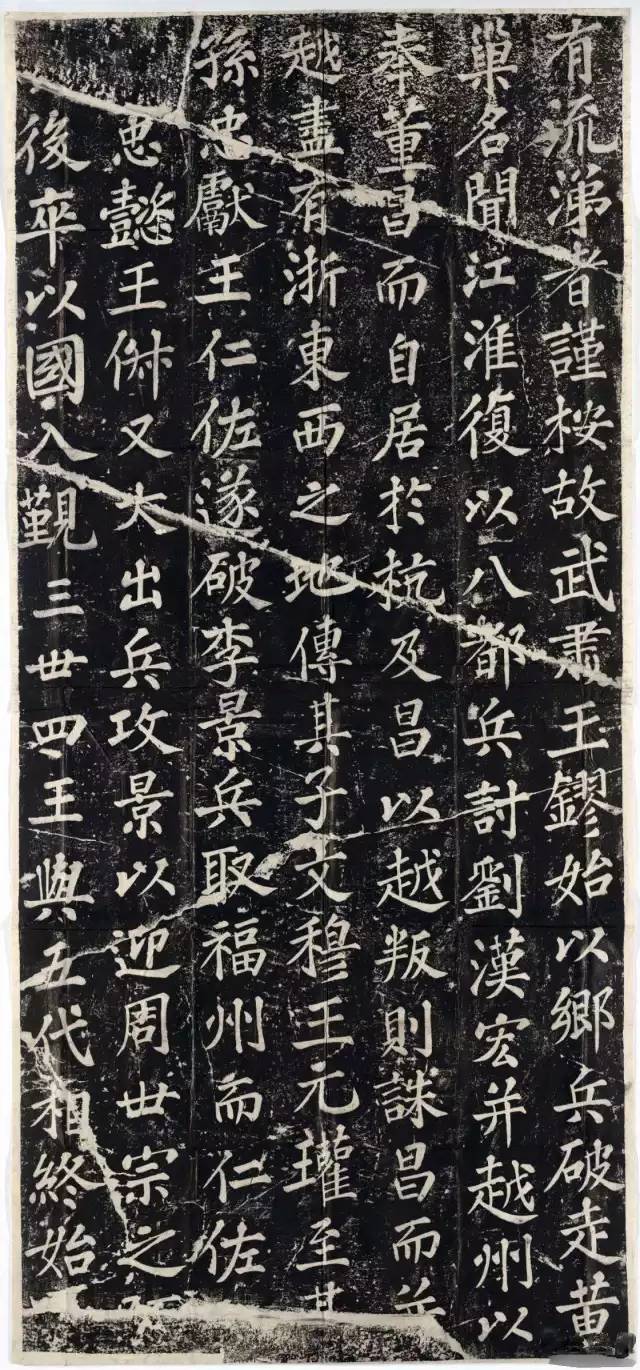 有流涕者謹桉故武肅王鏐始以鄉兵破走黄
巢名聞江淮復以八都兵討劉漢宏并越州以
奉董昌而自居於杭及昌以越叛則誅昌而并
越盡有浙東西之地傳其子文穆王元瓘至其
孫忠獻王仁佐遂破李景兵取福州而仁佐
忠懿王俶又大出兵攻景以迎周世宗之
後卒以國入覲三世四王與五代相終始